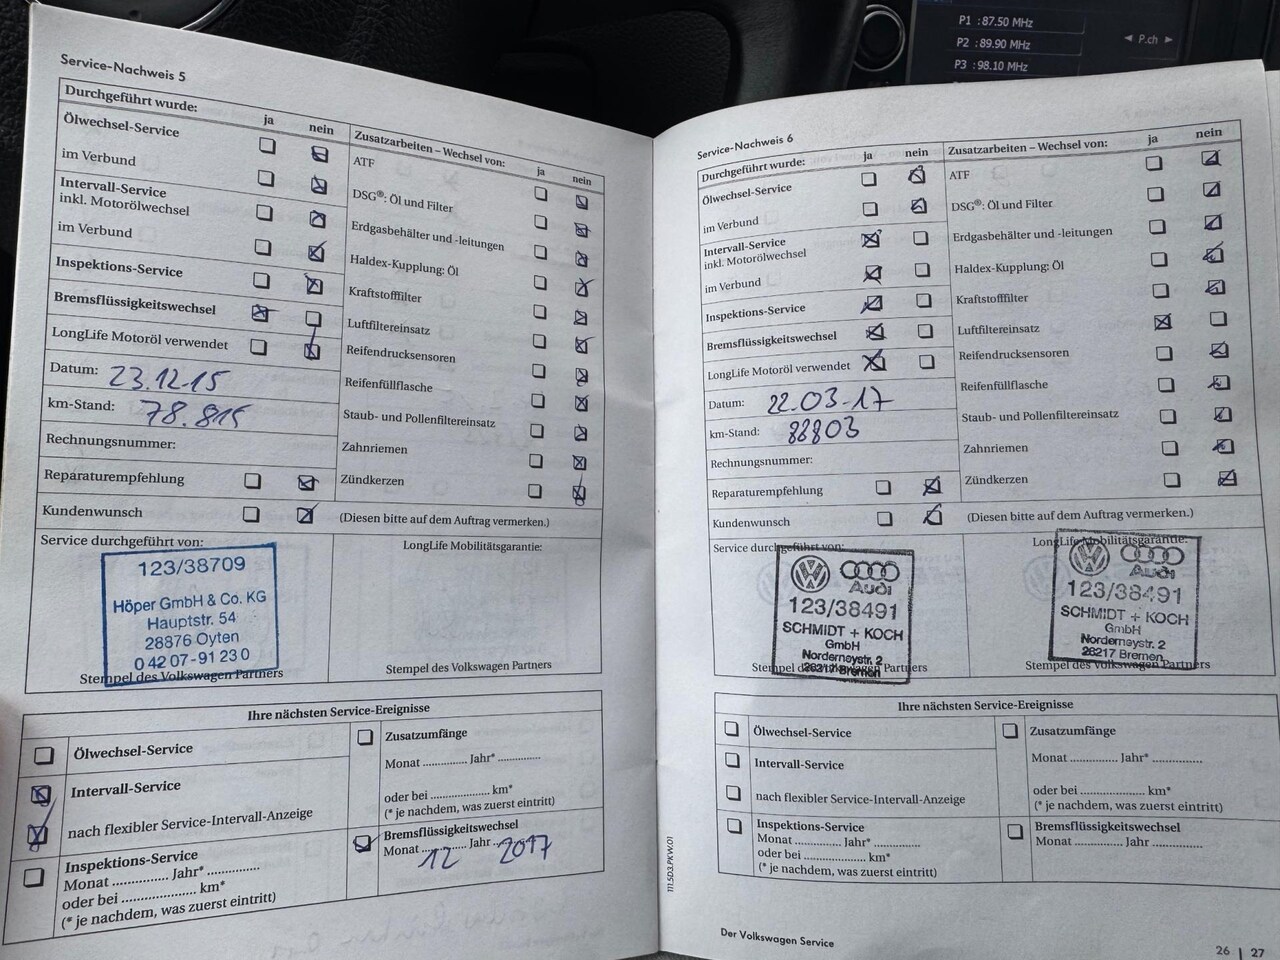 P1 :87.50 MHz
P2 :89.90 MHz
P3 :98.10 MHz
◄ P.ch ►
Service-Nachweis 5
Durchgeführt wurde:
ja
nein
Ölwechsel-Service
im Verbund
Intervall-Service
inkl. Motorölwechsel
im Verbund
Inspektions-Service
Bremsflüssigkeitswechsel
LongLife Motoröl verwendet
Datum: 23.12.15
km-Stand: 78.815
Rechnungsnummer:
Reparaturempfehlung
Kundenwunsch
Zusatzarbeiten – Wechsel von:
ja
nein
ATF
DSG®: Öl und Filter
Erdgasbehälter und -leitungen
Haldex-Kupplung: Öl
Kraftstofffilter
Luftfiltereinsatz
Reifendrucksensoren
Reifenfüllflasche
Staub- und Pollenfiltereinsatz
Zahnriemen
Zündkerzen
(Diesen bitte auf dem Auftrag vermerken.)
Service durchgeführt von:
123/38709
Höper GmbH & Co. KG
Hauptstr. 54
28876 Oyten
0 42 07-91 23 0
Stempel des Volkswagen Partners
LongLife Mobilitätsgarantie:
Stempel des Volkswagen Partners
Ihre nächsten Service-Ereignisse
Ölwechsel-Service
Intervall-Service
nach flexibler Service-Intervall-Anzeige
Inspektions-Service
Monat .............. Jahr* ..............
oder bei .................... km*
(* je nachdem, was zuerst eintritt)
Zusatzumfänge
Monat ............ Jahr* ............
oder bei .................... km*
(* je nachdem, was zuerst eintritt)
Bremsflüssigkeitswechsel
Monat 12 Jahr 2017
Service-Nachweis 6
Durchgeführt wurde:
ja
nein
Ölwechsel-Service
im Verbund
Intervall-Service
inkl. Motorölwechsel
im Verbund
Inspektions-Service
Bremsflüssigkeitswechsel
LongLife Motoröl verwendet
Datum: 22.03.17
km-Stand: 88803
Rechnungsnummer:
Reparaturempfehlung
Kundenwunsch
Zusatzarbeiten – Wechsel von:
ja
nein
ATF
DSG®: Öl und Filter
Erdgasbehälter und -leitungen
Haldex-Kupplung: Öl
Kraftstofffilter
Luftfiltereinsatz
Reifendrucksensoren
Reifenfüllflasche
Staub- und Pollenfiltereinsatz
Zahnriemen
Zündkerzen
(Diesen bitte auf dem Auftrag vermerken.)
Service durchgeführt von:
Audi
123/38491
SCHMIDT + KOCH
GmbH
Norderneystr. 2
28217 Bremen
Stempel des Volkswagen Partners
LongLife Mobilitätsgarantie:
Audi
123/38491
SCHMIDT + KOCH
GmbH
Norderneystr. 2
28217 Bremen
Stempel des Volkswagen Partners
Ihre nächsten Service-Ereignisse
Ölwechsel-Service
Intervall-Service
nach flexibler Service-Intervall-Anzeige
Inspektions-Service
Monat .............. Jahr* ..............
oder bei .................... km*
(* je nachdem, was zuerst eintritt)
Zusatzumfänge
Monat .............. Jahr* ..............
oder bei .................... km*
(* je nachdem, was zuerst eintritt)
Bremsflüssigkeitswechsel
Monat .............. Jahr ..............
111.5D3.PKW.01
Der Volkswagen Service
26 | 27